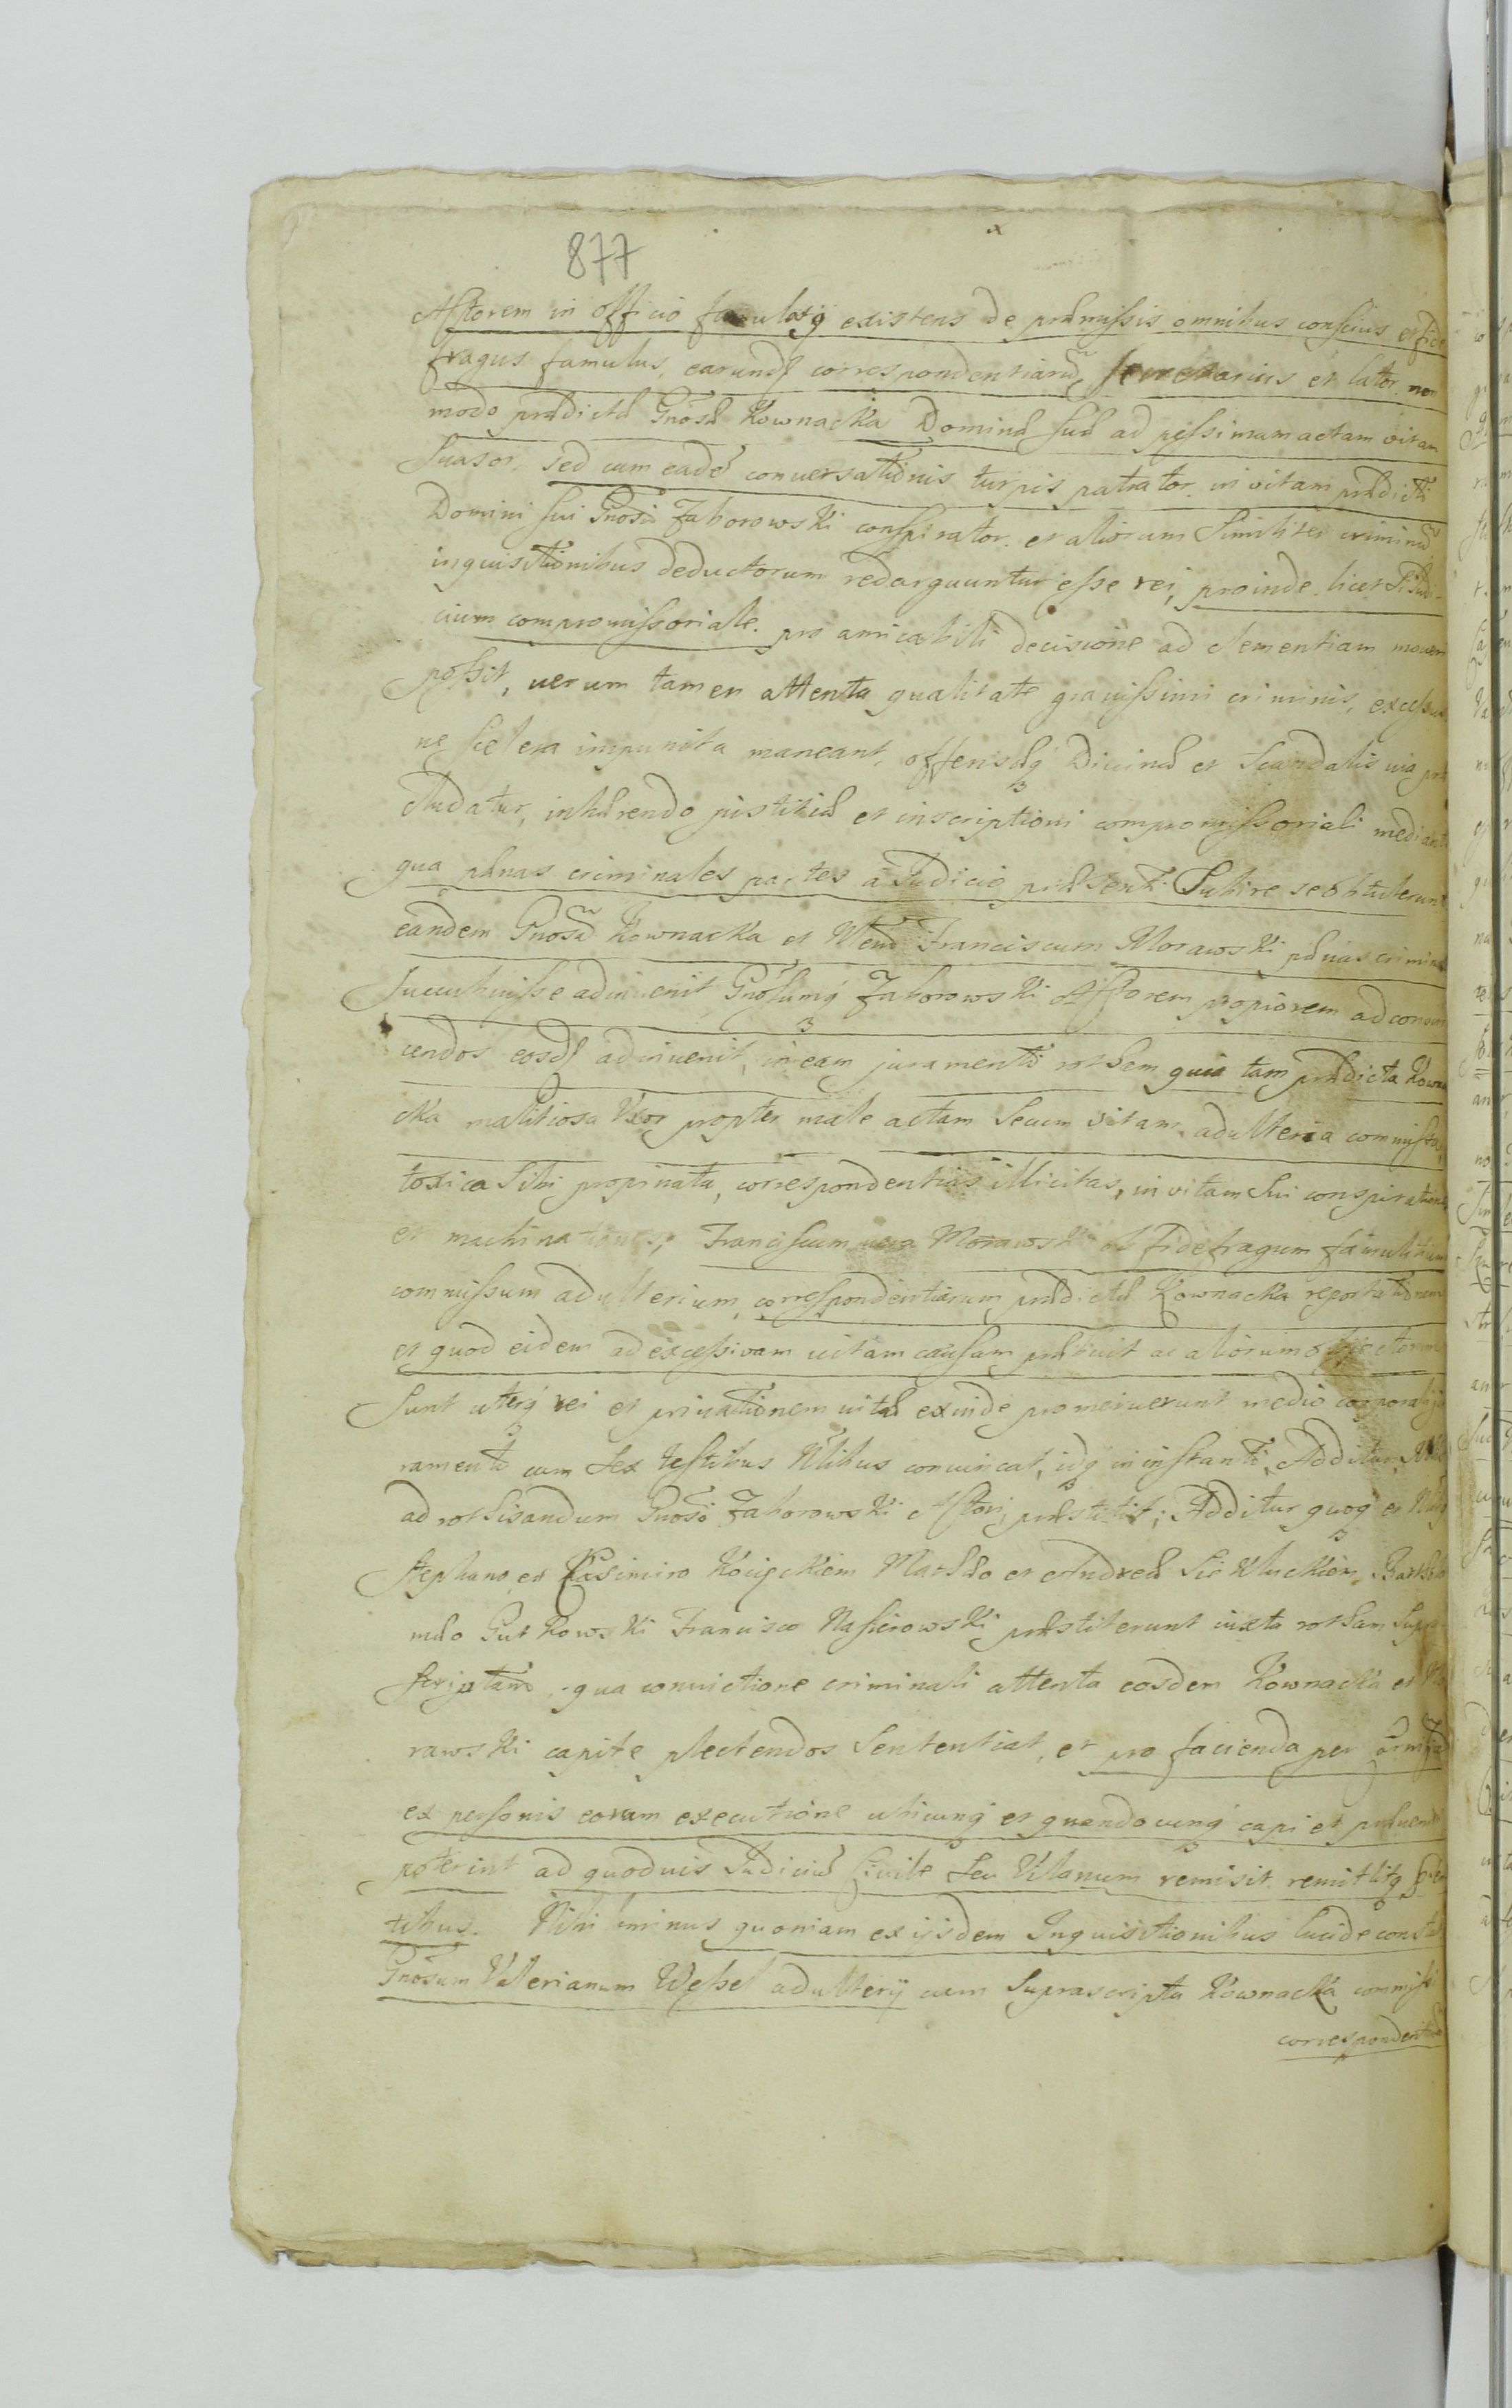 877
Actorem in officio famulatq existens de præmissis omnibus conscius et fide
fragus famulus, earundē correspondentiarū secretarius et lator non
modo prædictæ Gnosæ Kownacka Dominæ suæ ad pessimam actam vitam
suasor, sed cum eadē conversationis turpis patrator in vitam prædicti
Domini sui Gnosi Zaborowski conspirator et aliorum similiter criminū
inquisitionibus deductorum redarguuntur esse rei, proinde licet Judi-
cium compromissoriale pro amicabili decisione ad clementiam moveri
possit, uerum tamen attenta qualitate gravissimi criminis, excessus
ne scelera impunita maneant, offensæq Divinæ et scandalis via præ
cludatur, inhærendo justitiæ et inscriptioni compromissoriali mediante
qua pænas criminales partes a Judicio præsenti subire se obtulerunt
eandem Gnosā Kownacka et Nlem Franciscum Morawski pænas crimina
succubuisse adinuenit Gnosumq Zaborowski Actorem propiorem ad convin
cendos eosdē adinuenit, in eam juramenti rotham quia tam prædicta Kowna
cka malitiosa Uxor propter male actam secum vitam, adulteria commissa,
toxica sibi propinata, correspondentias illicitas, in vitam sui conspirationes
et machinationes, Franciscum vero Morawski ob fidefragum famulitium
commissum adulterium, correspondentiarum prædictæ Kownacka reportationem
et quod eidem ad excessivam uitam causam præbuit ac aliorum objectorum
sunt uterq rei et privationem uitæ exinde promeruerunt medio corporalis ju
ramenti cum sex testibus Nlibus convincat, idq in instanti. Additur
ad rothisandum Gnoso Zaborowski Actori, præstitit; Additur quoq et
Stephano et Casimiro Matheo et Andreæ Bartholo
mæo Gutkowski Francisco Nasierowski præstiterunt iuxta rotham supra
scriptam, qua convictione criminali attenta eosdem Kownacka et Mo
rawski capite plectendos sententiat, et pro facienda per
ex personis eorum executione ubicunq et quandocunq capi et præveniri
poterint ad quodvis Judiciū Civile seu remisit remittitq
tibus. Nihilominus quoniam ex ijsdem Inquisitionibus lucide constat
Gnosum Valerianum Wessel adulterij cum suprascripta Kownacka commissi
correspondentiarū